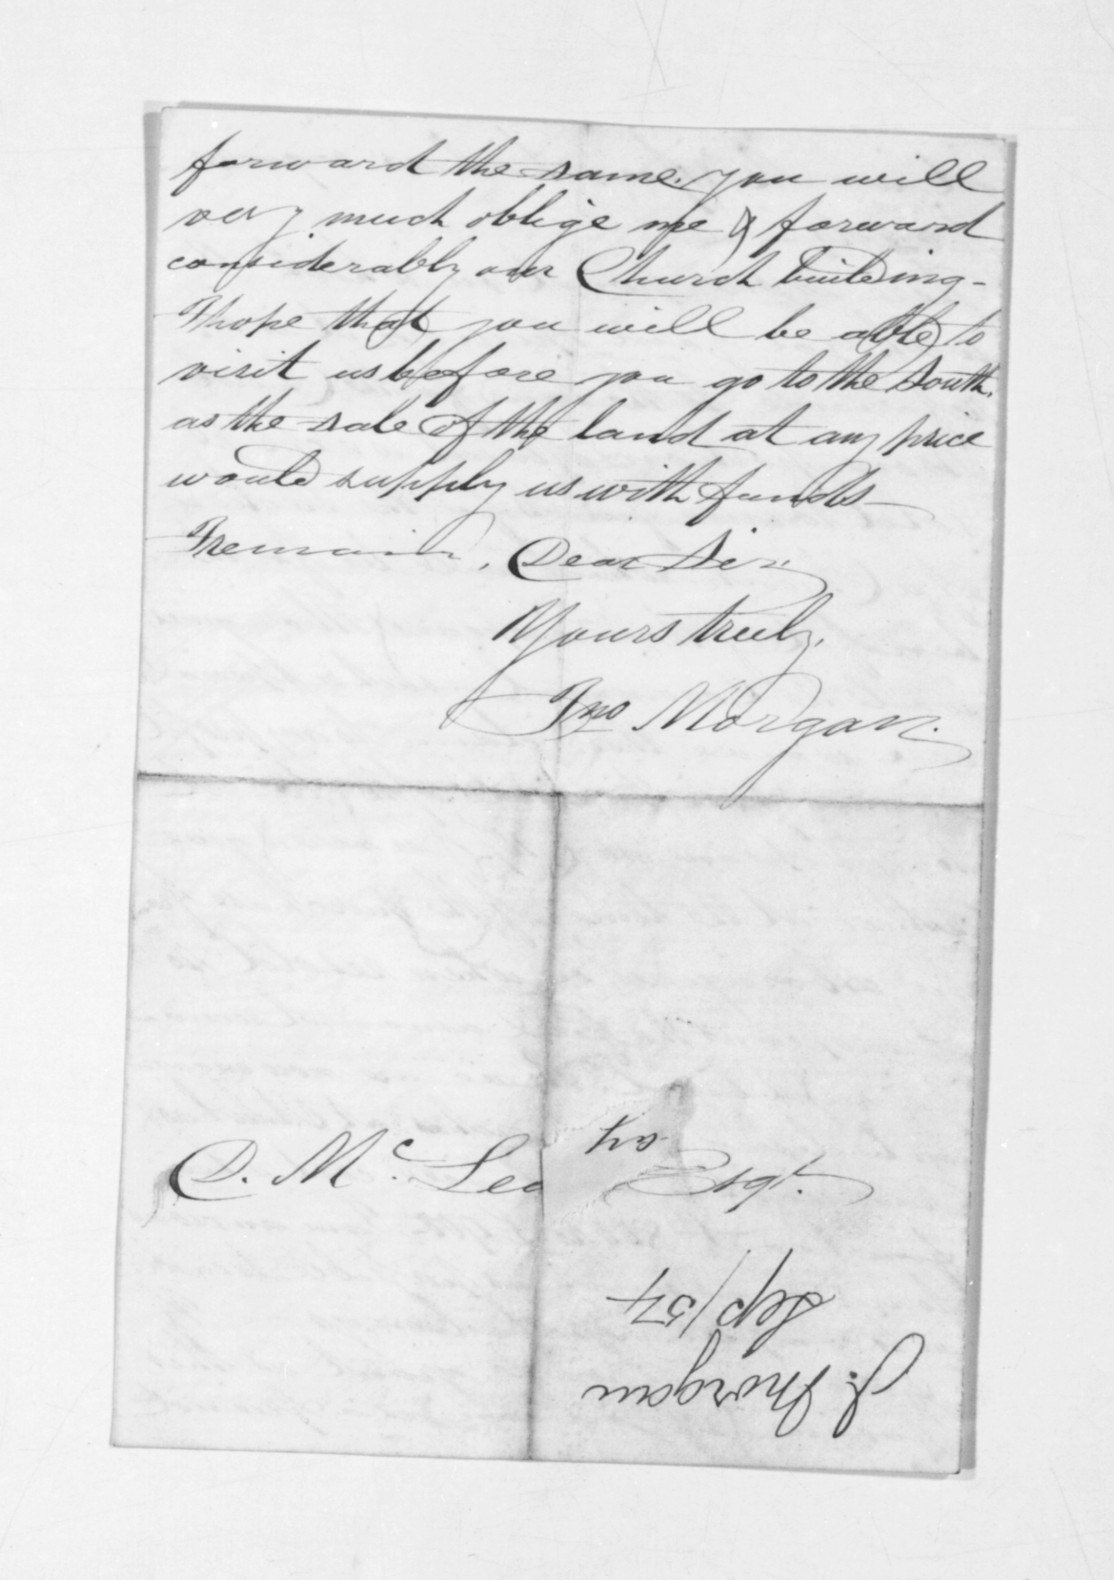 forward the same. you will
very much oblige me & forward
considerably our Church building -
I hope that you will be able to
visit us before you go to the South.
as the sale of the land at any price
would supply us with funds -
I remain, Dear Sir,
Yours truly,
Jno Morgan.
D. Mc. Lea ay Esqr.
J. Morgan
Sep/54